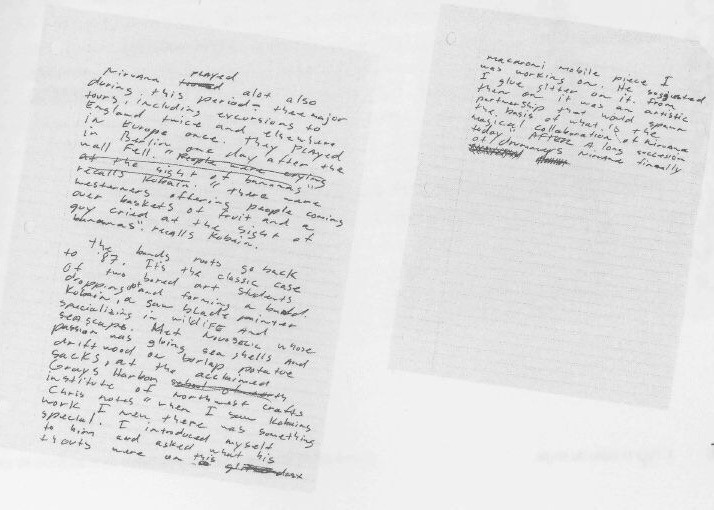 Nirvana PLAYED alot also
during this period. three major
tours, including excursions to
England twice and elsewhere
in Europe once. they PLAYED
in Berlin one day after the
wall Fell. "People were crying
at the sight of bananas"
recalls Kobain. "there were
westerners offering people coming
over baskets of fruit and a
guy cried at the sight of
bananas". recalls Kobain.
the bands roots go back
to '87. Its the classic case
Of two bored art students
dropping out and forming a band.
Kobain, a saw blade painter
specializing in wildlife and
seascape. Met Novoselic whose
passion was gluing sea shells And
driftwood on burlap potatoe
sacks, at the acclaimed
Grays Harbor
institute of northwest crafts
Chris notes "when I saw Kobains
work I new there was something
special. I introduced myself
to him and asked what his
thouts were on
macaroni mobile piece I
was working on. He suggested
I glue glitter on it. From
then on it was an artistic
partnership that would spawn
the basis of what is the
magical collaboration of Nirvana
today." AFTER A long succession
of drummers Nirvana finally